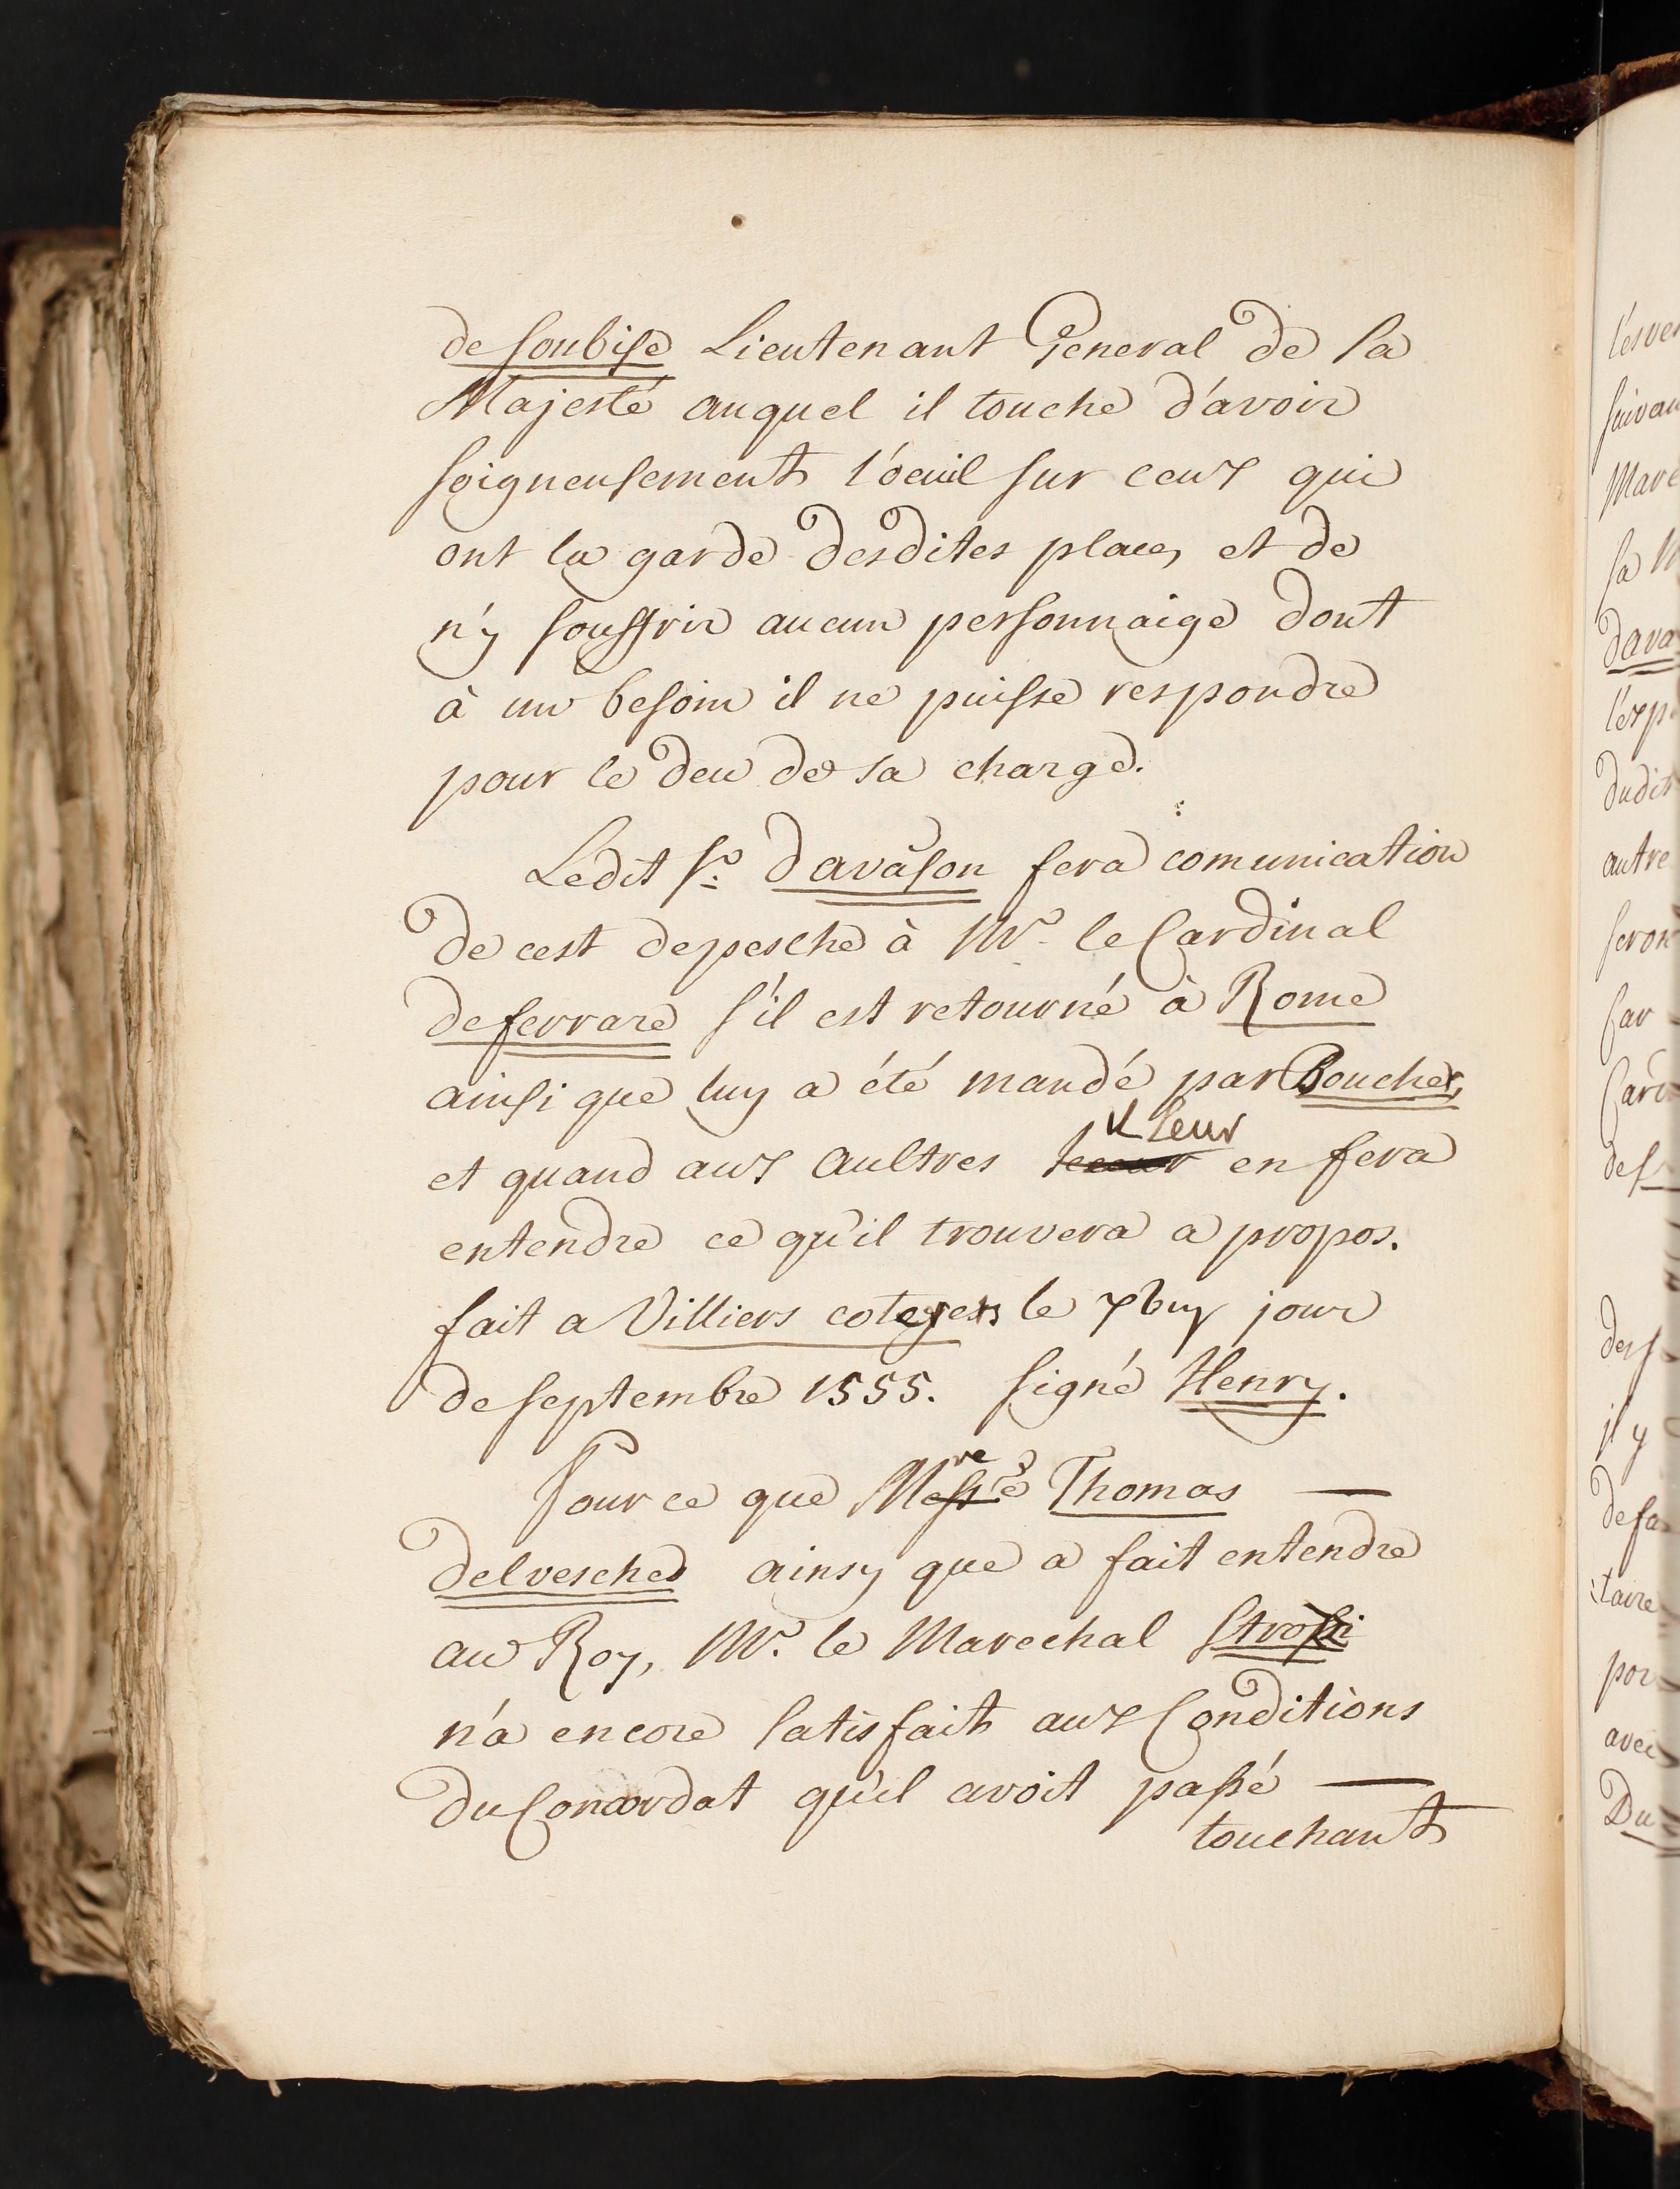 de Soubise Lieutenant General de sa
Majesté auquel il touche d'avoir
soigneusement l'oeuil sur ceux qui
ont la garde desdites places, et de
n'y souffrir aucun personnaige dont
à un besoin il ne puisse respondre
pour le deu de sa charge.
Ledit Sr. davanson fera comunication
de cest depesche à Mr. le Cardinal
de ferrare s'il est retourné à Rome
ainsi que luy a été mandé par Boucher,
et quand aux aultres il leur en fera
entendre ce qu'il trouvera a propos.
fait a Villiers coterets le jour
de septembre 1555. signé Henry.
Pour ce que Messre Thomas —
delvesche ainsy que a fait entendre
au Roy, Mr. le Marechal Strossi
n'a encore satisfait aux Conditions
du Concordat qu'il avoit passé —
touchant